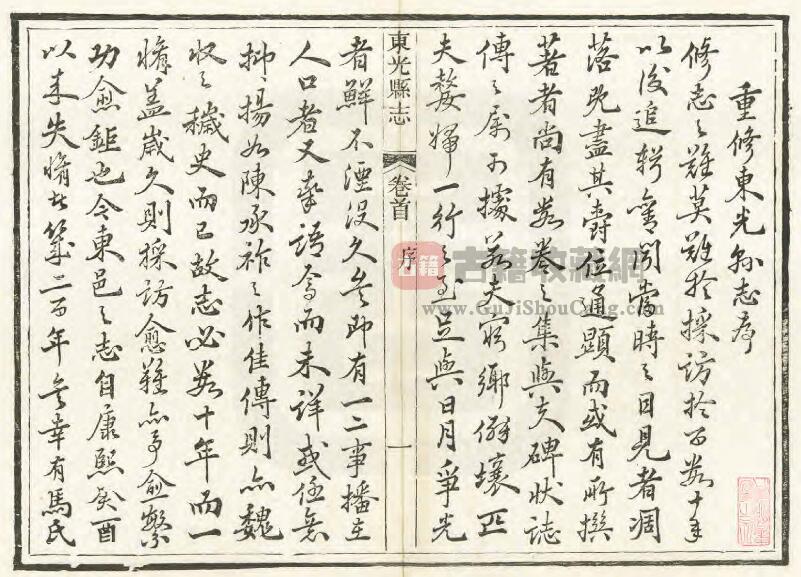 重修東光縣志序
修志之難莫難於採訪於百數十年
以後追輯舊聞當時之目見者凋
落既盡其爵位通顯而或有所撰
著者尚有數卷之集與夫碑狀誌
傳之屬可據若夫窮鄉僻壤匹
夫嫠婦一行之至足與日月爭光
東光縣志
卷首
序
一
者鮮不湮沒久矣即有一二事播在
人口者又率語焉而未詳或任意
抑揚如陳承祚之作佳傳則亦魏
收之穢史而已故志必數十年而一
脩蓋歲久則採訪愈難亦事愈繁
功愈鉅也今東邑之志自康熙癸酉
以來失脩者幾二百年矣幸有馬氏
古籍
古籍收藏網
www.GuJiShouCang.com